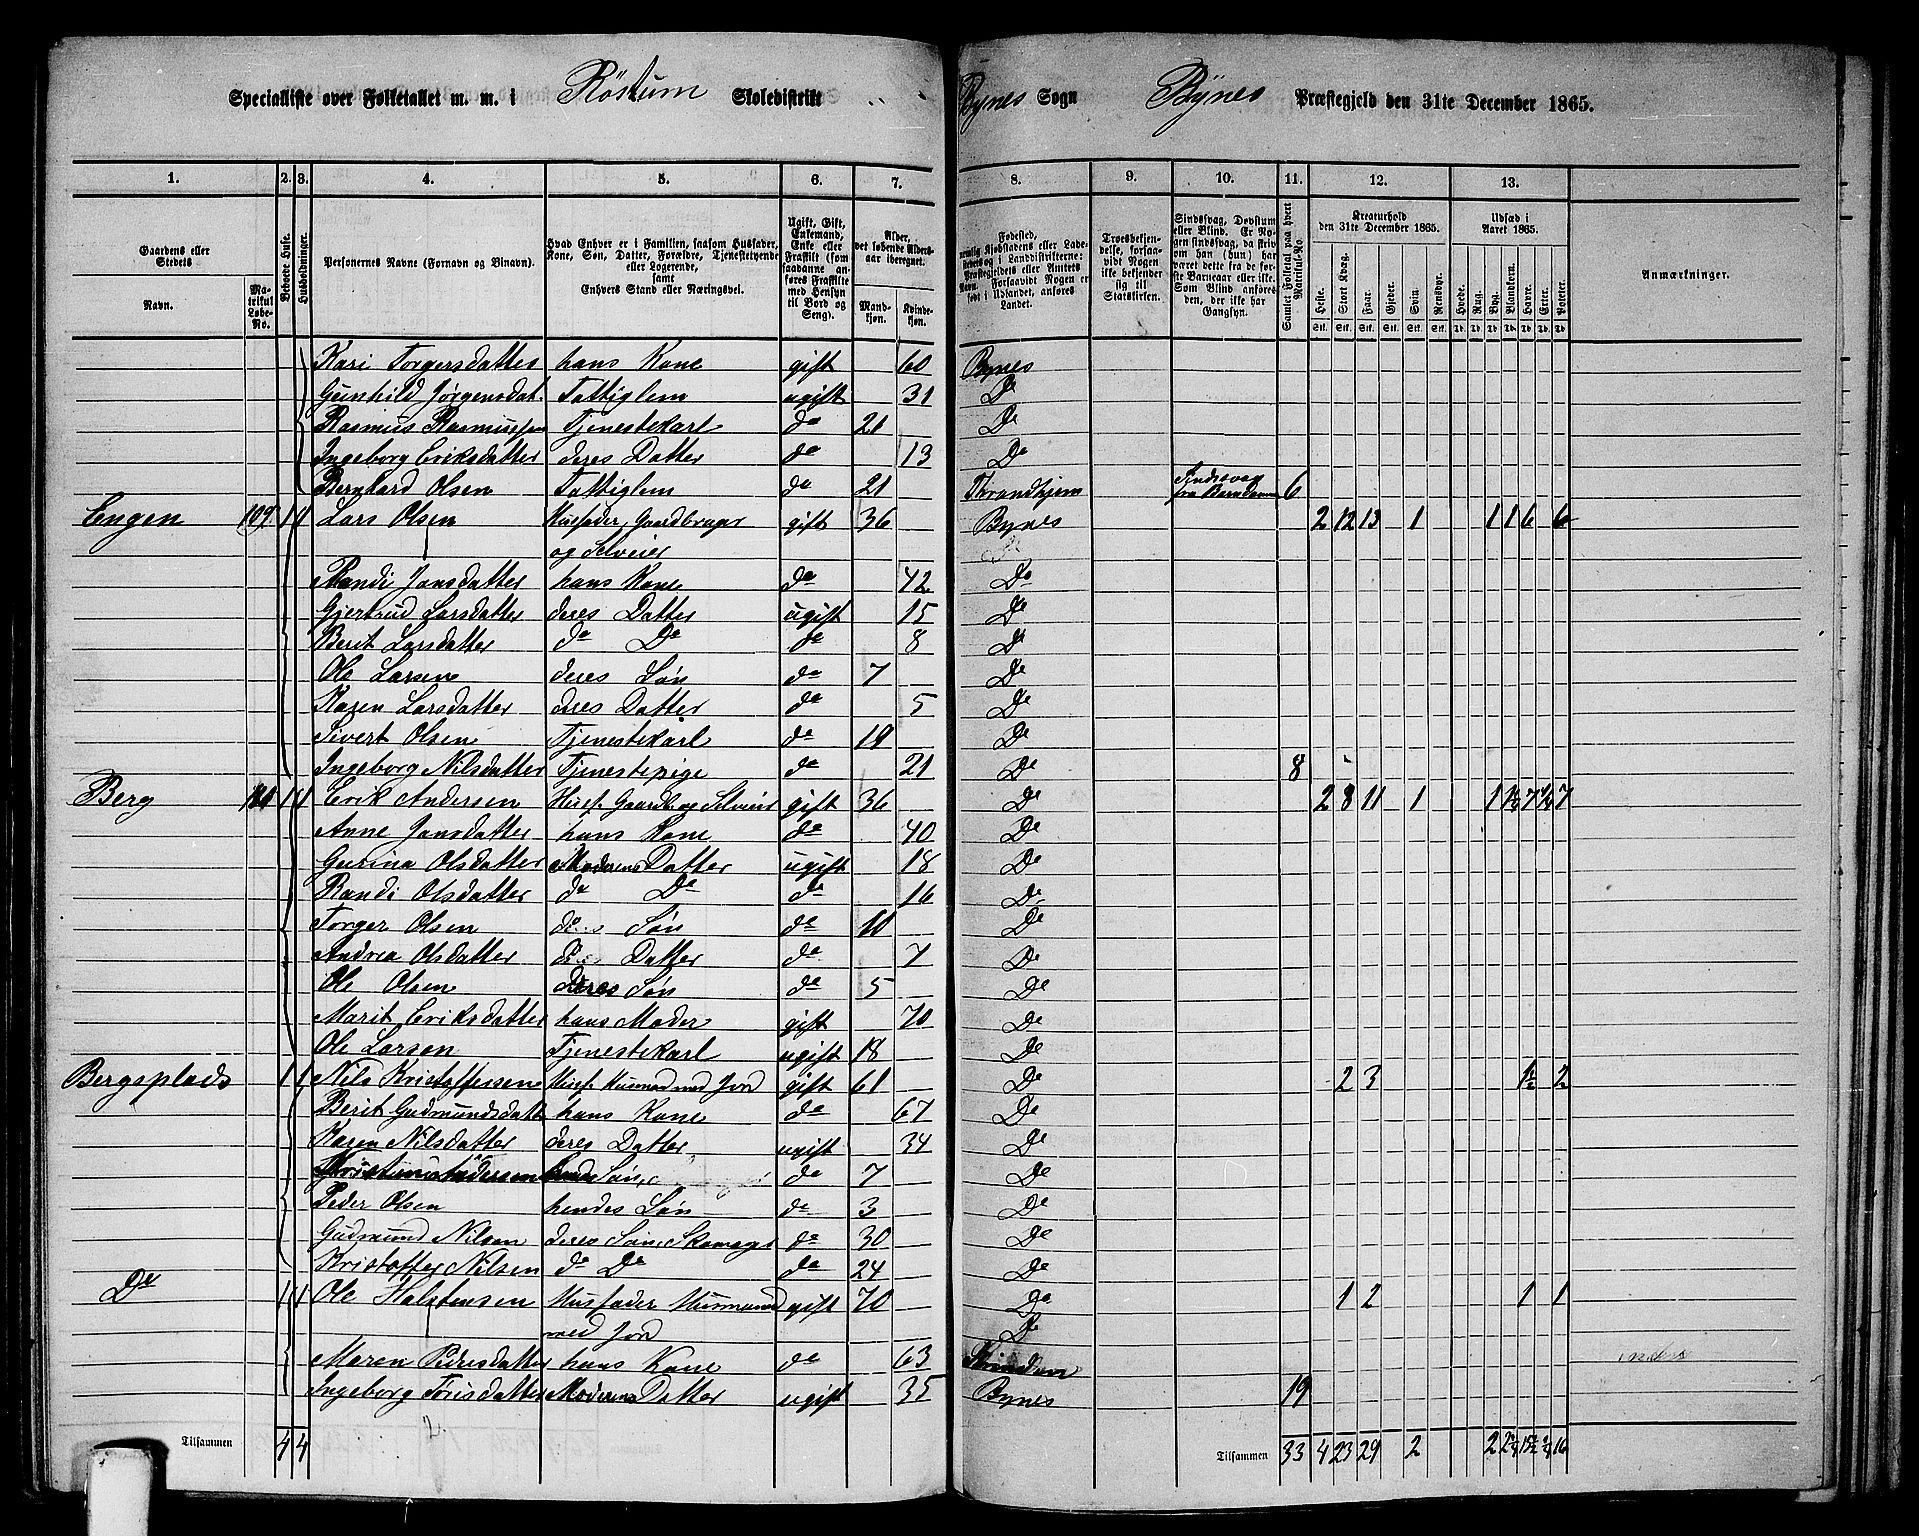 Specialliste over Folketallet m. m. i Røstum Skoledistrikt Bynes Sogn Bynes Præstegjeld den 31te December 1865.
1. 2. 3. 4. 5. 6. 7. 8. 9. 10. 11. 12. 13.
Gaardens eller Stedets
Navn.
Matrikul Løbe-No.
Beboede Huse.
Husholdninger.
Personernes Navne (Fornavn og Binavn).
Hvad Enhver er i Familien, saasom Husfader, Kone, Søn, Datter, Forældre, Tjenestetyende eller Logerende, samt Enhvers Stand eller Næringsvei.
Ugift, Gift, Enkemand, Enke eller Fraskilt (som saadanne anføres Fraskilte med Hensyn til Bord og Seng).
Alder, det løbende Alders-aar iberegnet.
Mand-kjøn. Kvinde-kjøn.
Troesbekjendelse, forsaavidt Nogen ikke bekjender sig til Statskirken.
Samlet Folketal paa hvert Matrikul-No.
Kreaturhold den 31te December 1865.
Heste. Stort Kvæg. Faar. Gjeder. Svin. Rensdyr.
Udsæd i Aaret 1865.
Hvede. Rug. Byg. Blandkorn. Havre. Erter. Poteter.
Anmærkninger.
Kari Torgersdatter hans Kone gift 60 Bynes
Gunhild Jørgensdat. Fattiglem ugift 31 Do
Rasmus Rasmussen Tjenestekarl do 21 Do
Ingeborg Eriksdatter deres Datter do 13 Do
Bernhard Olsen Fattiglem do 21 Throndhjem Sindssvag fra Barndommen 6
Engen 109 1 1 Lars Olsen Husfader, Gaardbruger gift 36 Bynes 2 12 13 1 1 1 6 6
og Selveier
Randi Jonsdatter hans Kone do 42 Do
Gjertrud Larsdatter deres Datter ugift 15 Do
Berit Larsdatter do Do do 8 Do
Ole Larsen deres Søn do 7 Do
Karen Larsdatter deres Datter do 5 Do
Sivert Olsen Tjenestekarl do Do
Ingeborg Nilsdatter Tjenestepige do 21 Do 8
Berg 1 1 Erik Andersen Husf. Gaardb. og Selveier gift 36 Do 2 8 11 1 1 7 7
Anne Jonsdatter hans Kone do 40 Do
Gurina Olsdatter Moderens Datter ugift 18 Do
Randi Olsdatter do Do do 16 Do
Torger Olsen do Søn do 10 Do
Andrea Olsdatter do Datter do 7 Do
Ole Olsen deres Søn do 5 Do
Marit Eriksdatter hans Moder gift 70 Do
Ole Larsen Tjenestekarl ugift 18 Do
Bergsplads 1 1 Nils Kristoffersen Husf. Husmand med Jord gift 61 Do 2 3 1½ 2
Berit Gudmundsdatt hans Kone do 67 Do
Karen Nilsdatter deres Datter ugift 34 Do
Søn do 7 Do
Peder Olsen hendes Søn do 3 Do
Gudmund Nilsen deres Søn, Skomager do 30 Do
Kristoffer Nilsen do Do do 24 Do
Do 1 1 Ole Halstensen Husfader Husmand gift 70 Do 1 2 1 1
med Jord Do
Maren Pedersdatter hans Kone do 63
Ingeborg Moderens Datter ugift 35 Bynes 19
Tilsammen 4 4
Tilsammen 33 4 23 29 2 2 16